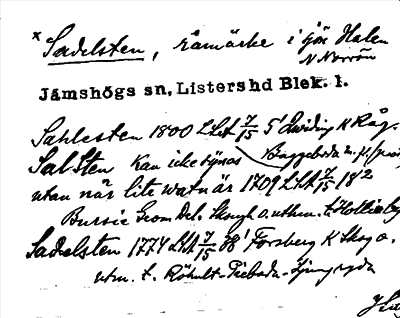 x Sadelsten, råmärke i sjön Halen
N Norrön
Jämshögs sn, Listershd Blek. l.
Sahlesten 1800 LSA 7/15 5' Lwiding K Råg.
Sal Sten kan icke synas Baggeboda
utan när lite watn är 1709 LSA 7/15 18'2
Bursie Geom Del. Skogh o. uthm. t.
Sadelsten 1774 LSA 7/15 38' Forsberg K Skog o.
utm. t. Röhult - Ljungryda